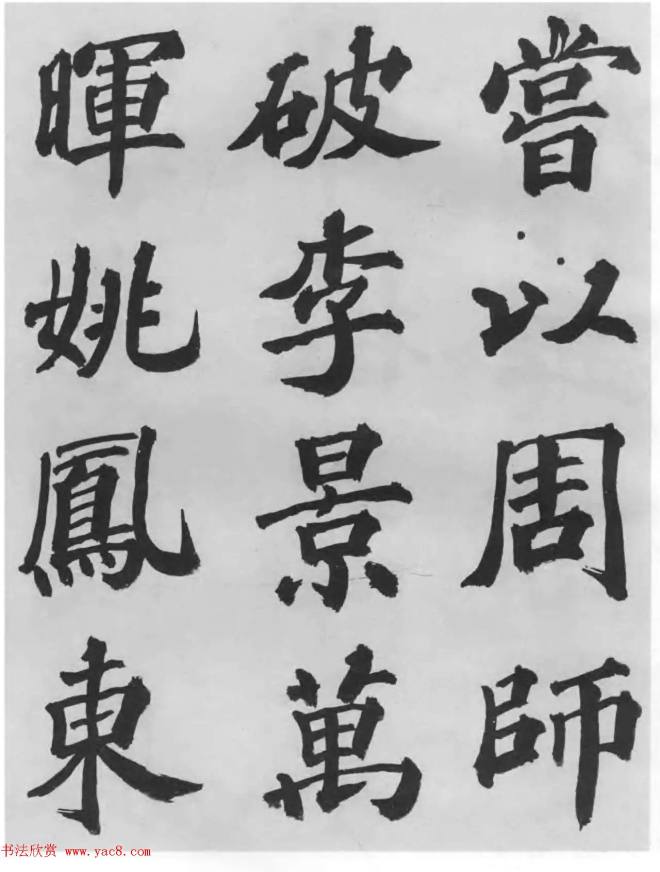 嘗以周師
破李景萬
暉姚鳳東
书法欣赏 www.yac8.com